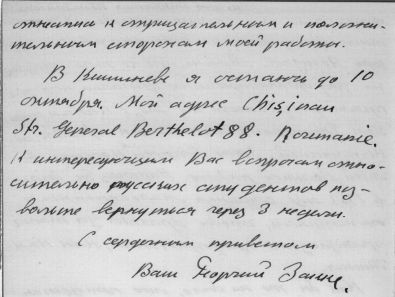 отнапись к отрицательным и положи-
тельным сторонам моей работы.
В Кишиневе я остаюсь до 10
октября. Мой адрес Chişinau
Str. General Berthelot 88. Roumanie.
К интересующим Вас вопросам отно-
сительно русских студентов поз-
вольте вернуться через 3 недели.
С сердечным приветом
Ваш Георгий